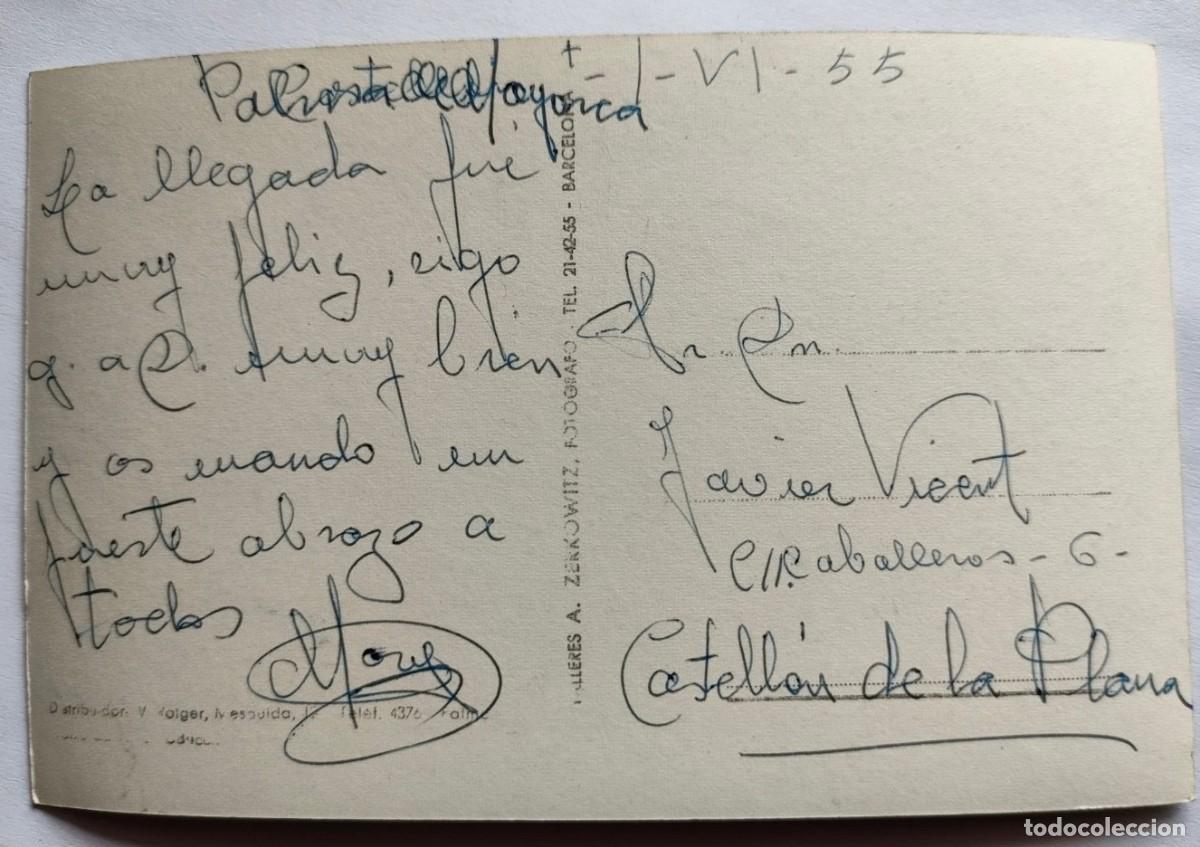 Palma de Mallorca - 1 - VI - 55
La llegada fué
muy feliz, sigo
g. a D. muy bien
y os mando un
fuerte abrazo a
todos
Sr. Dn.
Javier Vicent
C/ Caballeros - 6 -
Castellón de la Plana
TALLERES A. ZERKOWITZ, FOTOGRAFO · TEL. 21-42-55 - BARCELONA
Distribuidor: V. Rotger, Teléf. 4376
todocoleccion